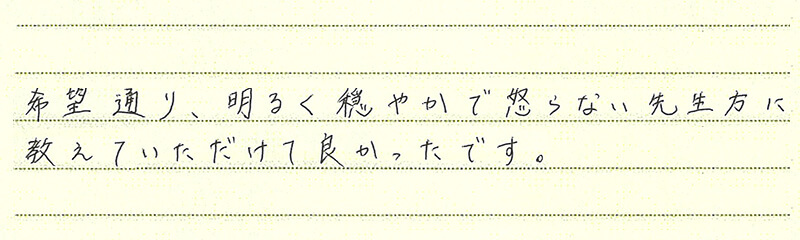 希望通り、明るく穏やかで怒らない先生方に
教えていただけて良かったです。